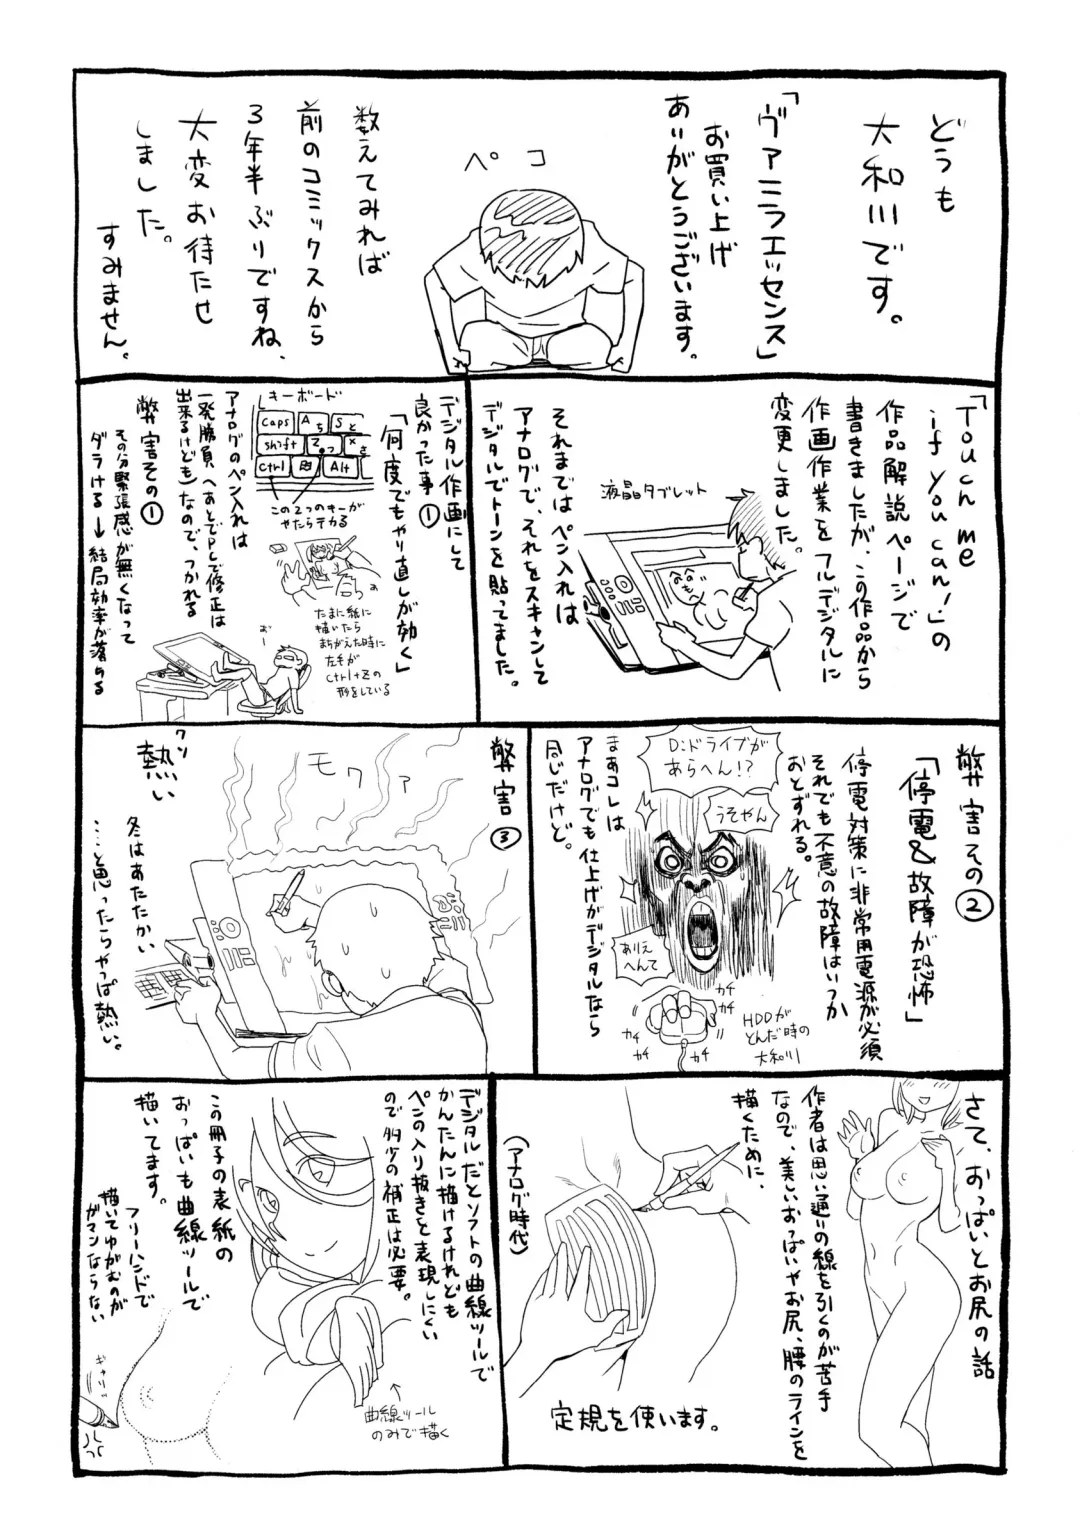 どうも
大和川です。
「ヴァニラエッセンス」
お買い上げ
ありがとうございます。
ペコ
数えてみれば
前のコミックスから
3年半ぶりですね、
大変お待たせ
しました。
すみません。
「Touch me
if you can!」の
作品解説ページで
書きましたが、この作品から
作画作業をフルデジタルに
変更しました。
液晶タブレット
それまではペン入れは
アナログで、それをスキャンして
デジタルでトーンを貼ってました。
デジタル作画にして
良かった事①
「何度でもやり直しが効く」
キーボード
Caps
A
ち
S
と
Shift
Z
っ
X
さ
Ctrl
Alt
この2つのキーが
やたらテカる
たまに紙に
描いたら
まちがえた時に
左手が
Ctrl+Zの
形をしている
アナログのペン入れは
一発勝負(あとでPCで修正は
出来るけども)なので、つかれる
弊害その①
その分緊張感が無くなって
ダラける→結局効率が落ちる
おー
弊害その②
「停電&故障が恐怖」
停電対策に非常用電源が必須
それでも不意の故障はいつか
おとずれる。
D:ドライブが
あらへん!?
うそやん
ありえ
へんて
カチ
カチ
カチ
カチ
カチ
HDDが
とんだ時の
大和川
まあコレは
アナログでも仕上げがデジタルなら
同じだけど。
弊害③
モワァ
熱い
冬はあたたかい
……と思ったらやっぱ熱い。
さて、おっぱいとお尻の話
作者は思い通りの線を引くのが苦手
なので、美しいおっぱいやお尻、腰のラインを
描くために、
(アナログ時代)
定規を使います。
デジタルだとソフトの曲線ツールで
かんたんに描けるけれども
ペンの入り抜きを表現しにくい
ので多少の補正は必要。
この冊子の表紙の
おっぱいも曲線ツールで
描いてます。
フリーハンドで
描いてゆがむのが
ガマンならない
曲線ツール
のみで描く